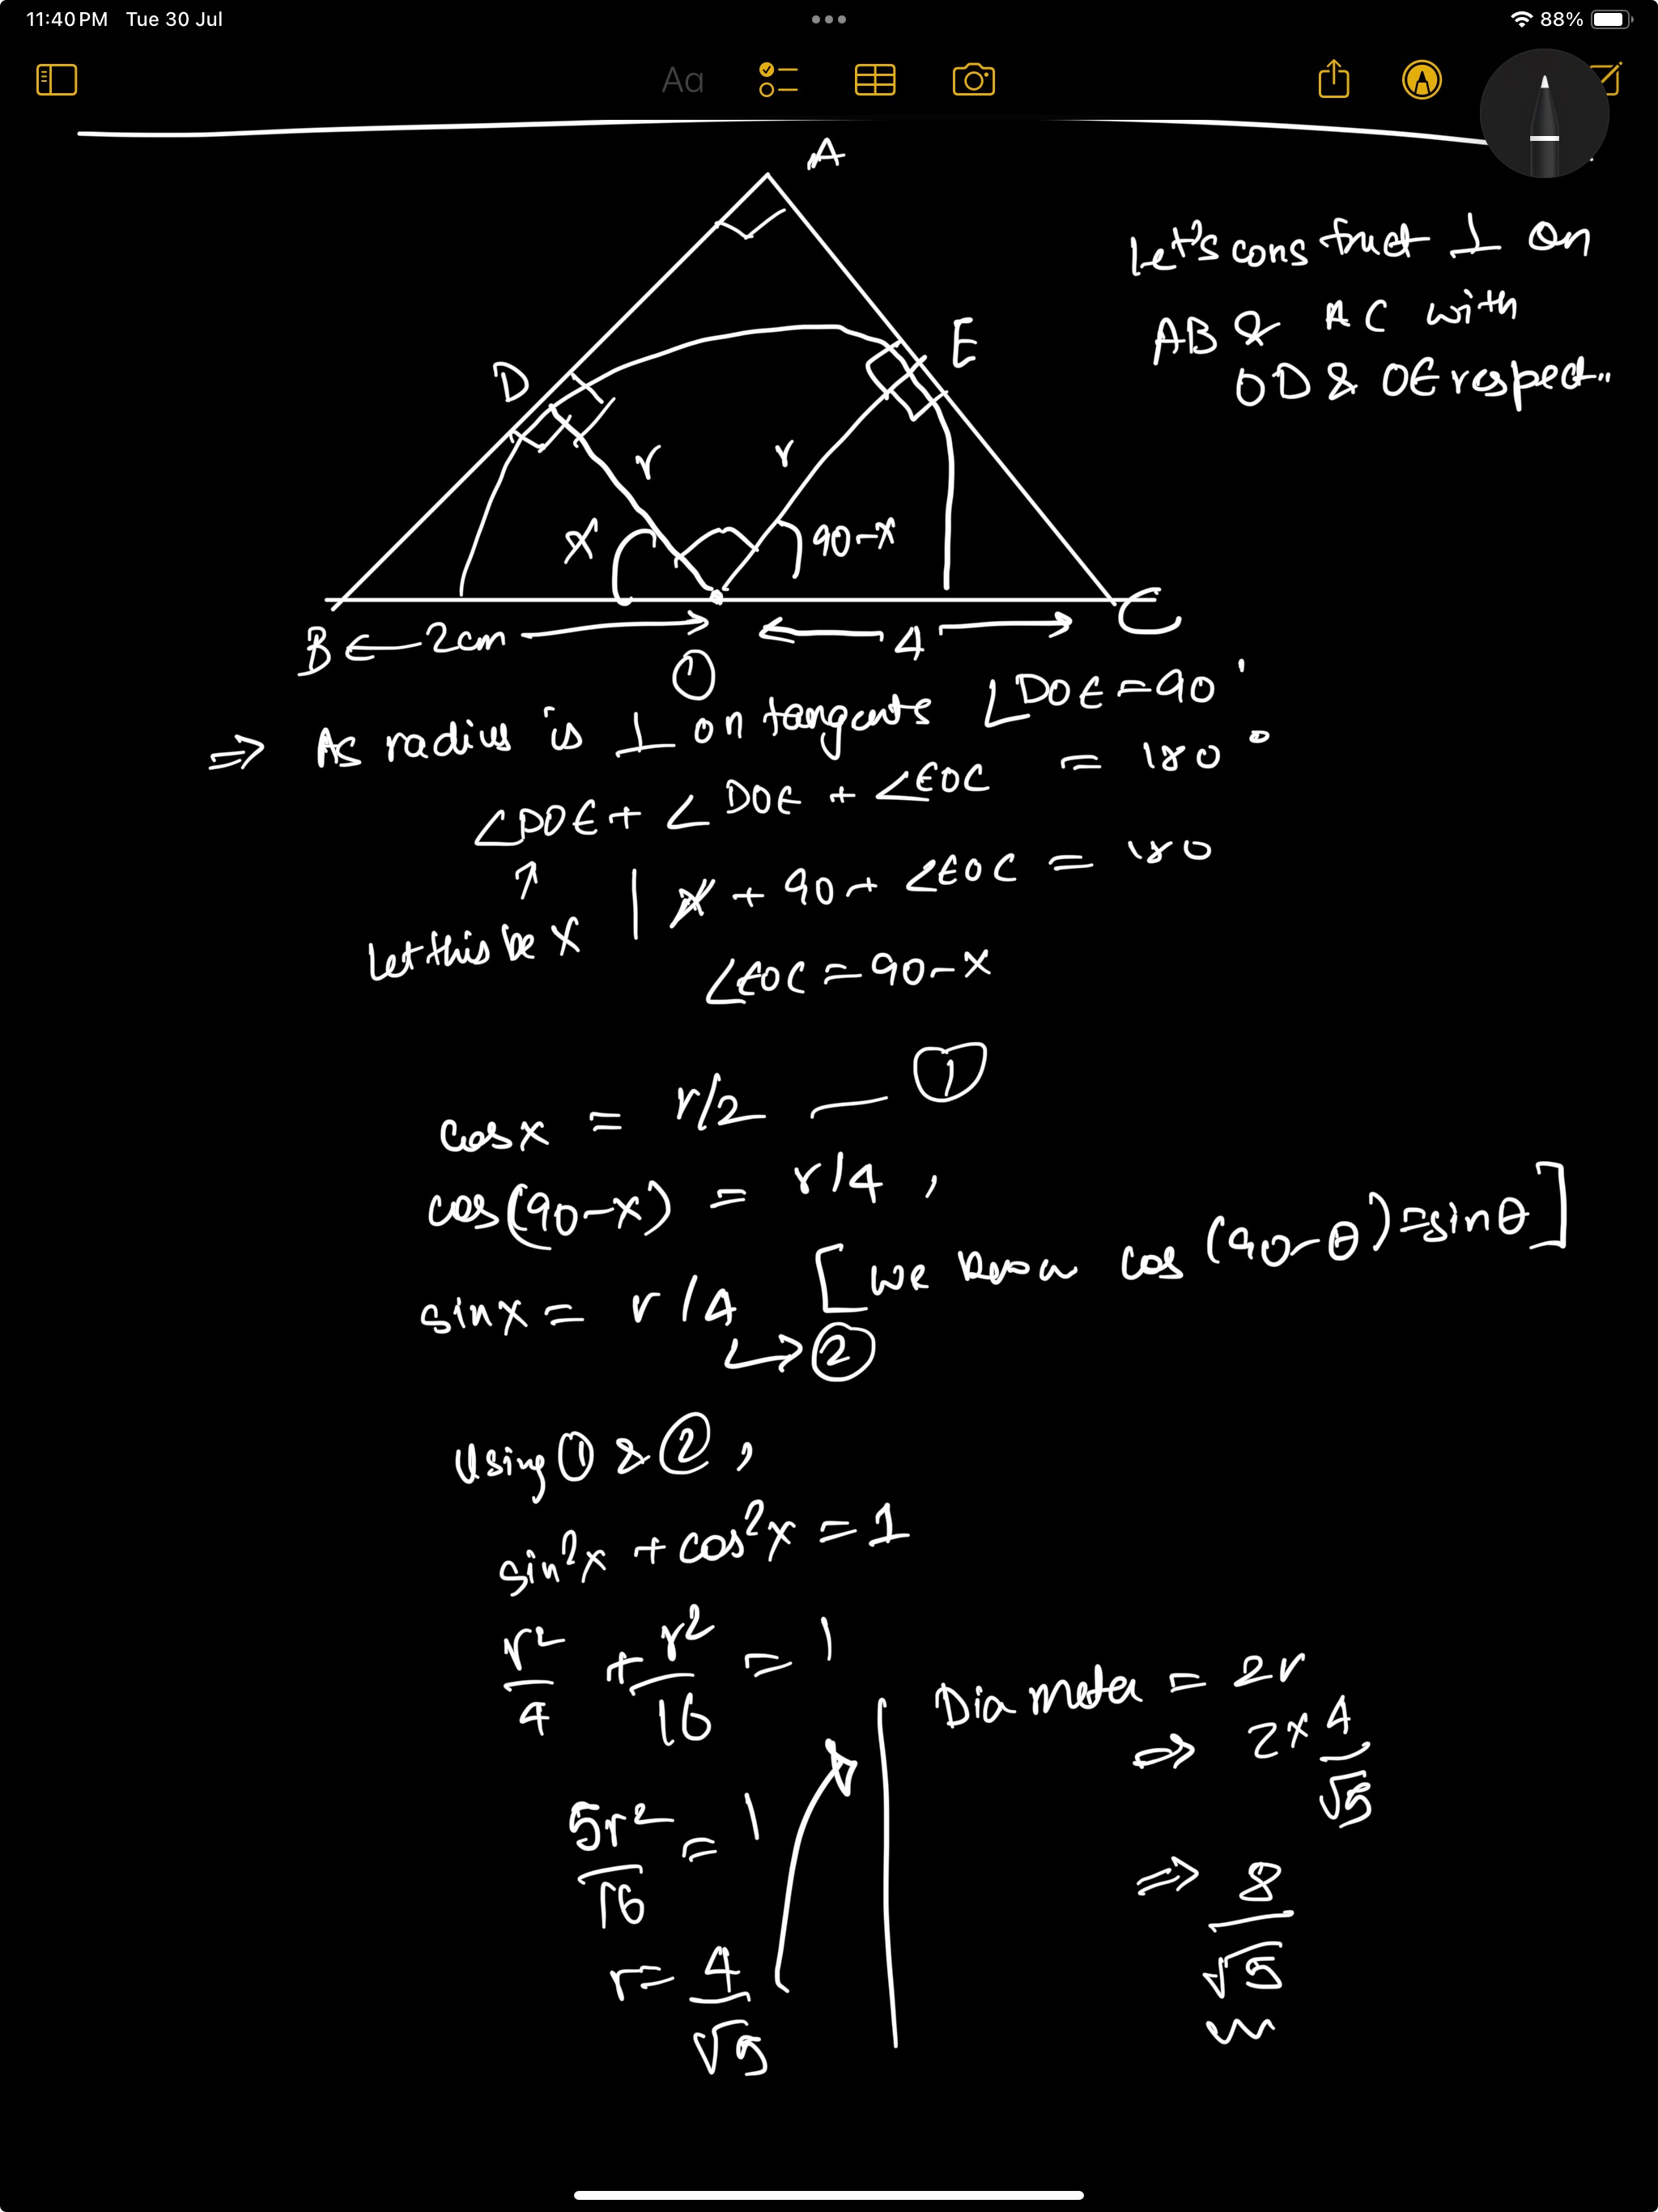 11:40 PM Tue 30 Jul
88%
Aa
A
Let's construct ⊥ on
AB & AC with
OD & OE respect..
D
E
r
r
x
90-x
B ← 2cm → ← 4 → C
O
⇒ As radius is ⊥ on tangents ∠DOE = 90°
∠DOE + ∠DOE + ∠EOC = 180°
↑
Let this be x | x + 90 + ∠EOC = 180
∠EOC = 90-x
cosx = r/2 — ①
cos(90-x) = r/4 ,
sinx = r/4 [we know cos(90-θ)=sinθ]
↳ ②
Using ① & ② ,
sin²x + cos²x = 1
r²/4 + r²/16 = 1
5r²/16 = 1
r = 4/√5
Diameter = 2r
⇒ 2 × 4/√5
⇒ 8/√5